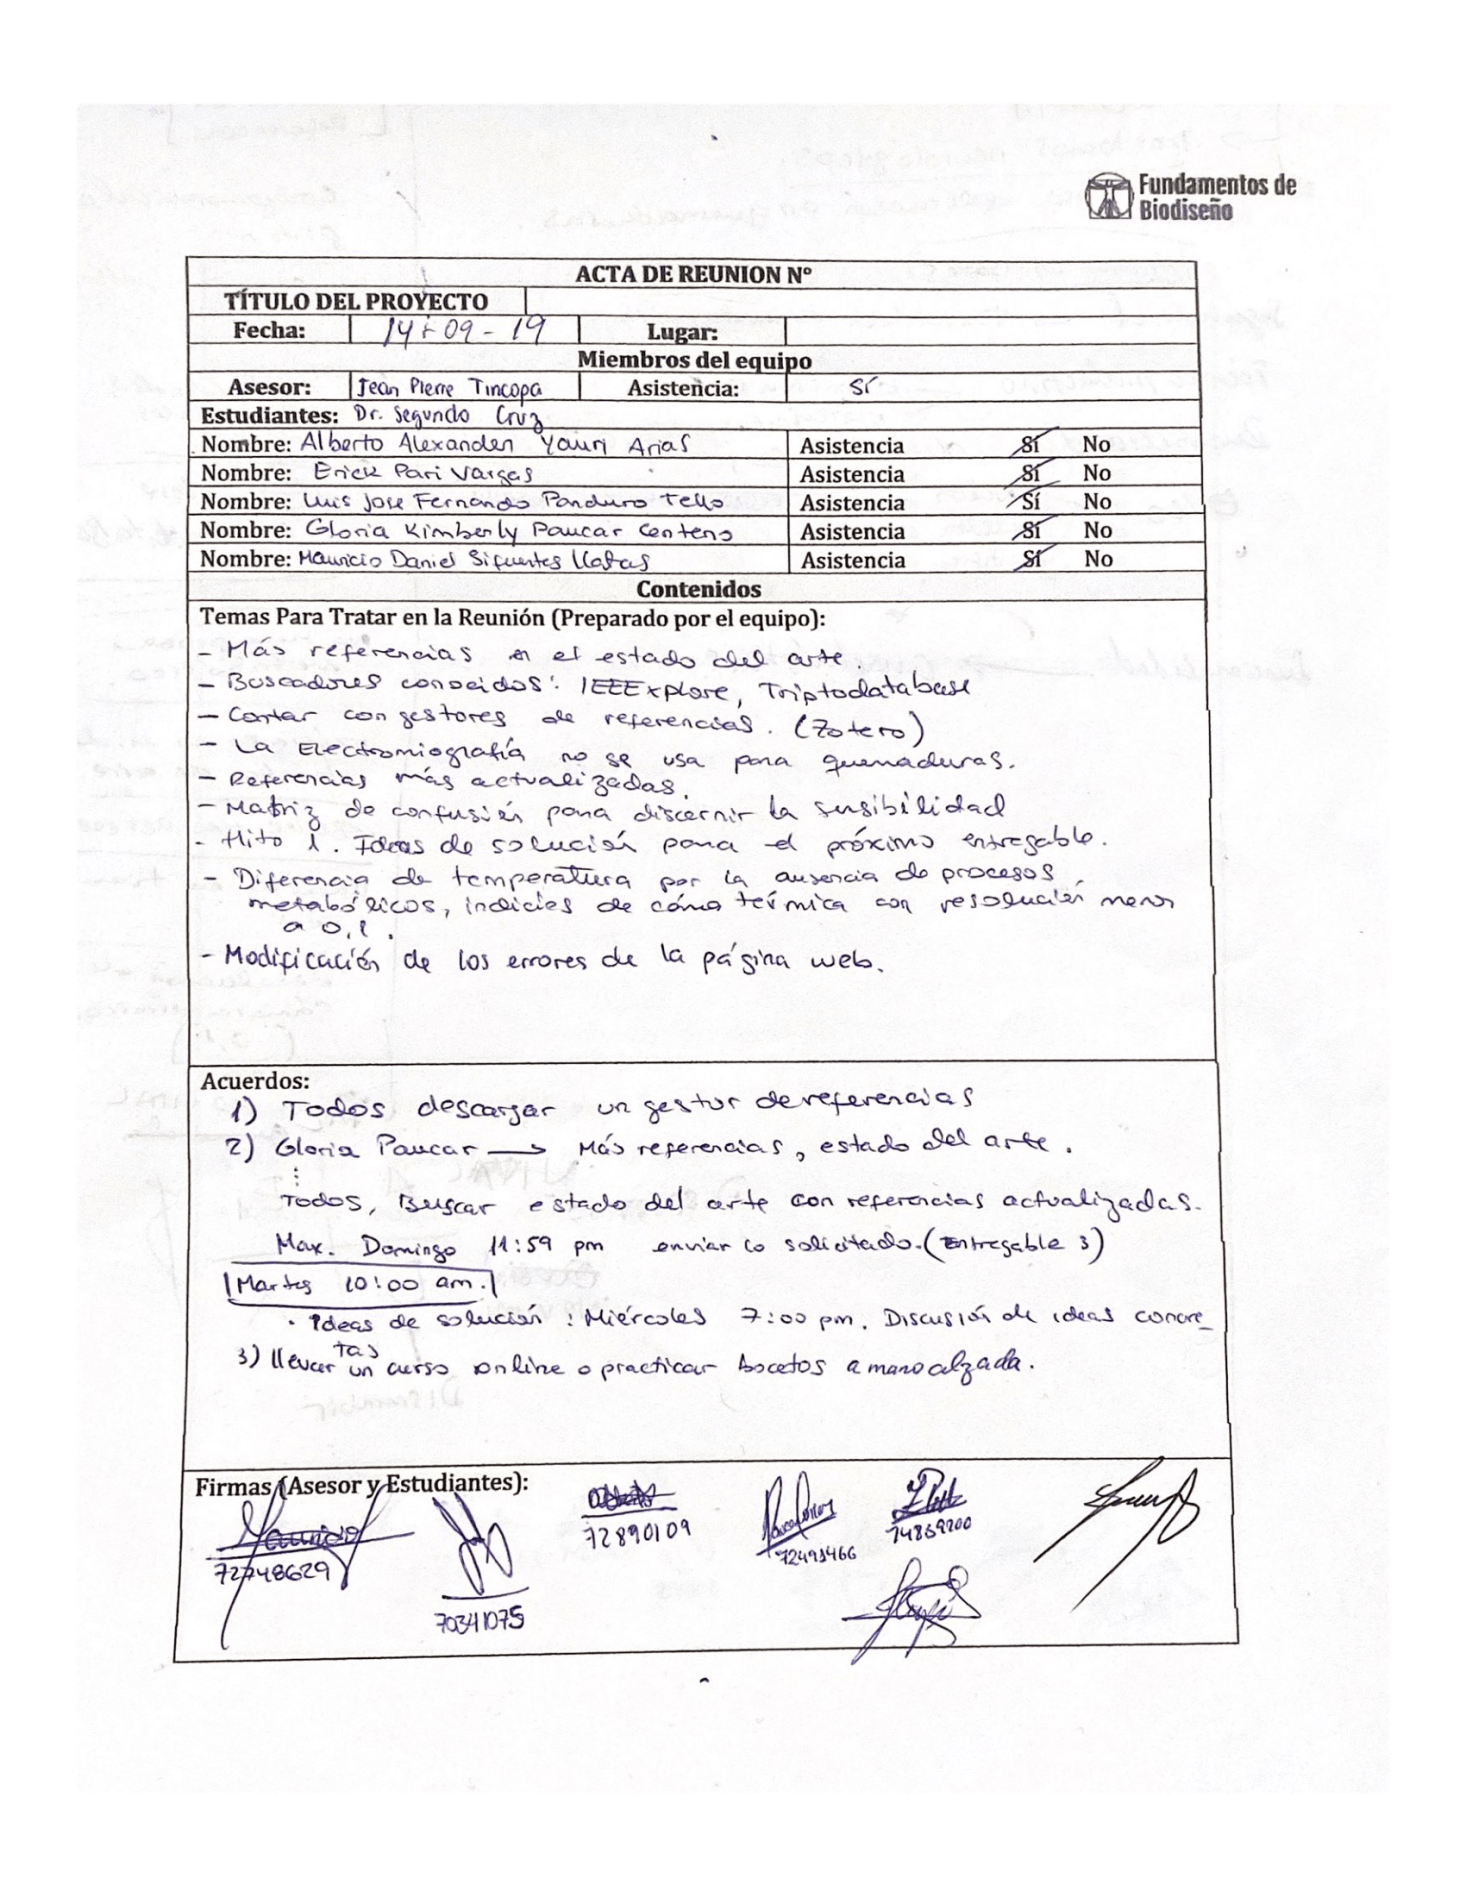 Fundamentos de
Biodiseño
ACTA DE REUNION Nº
TÍTULO DEL PROYECTO
Fecha: 14-09-19 Lugar:
Miembros del equipo
Asesor: Jean Pierre Tincopa Asistencia: Sí
Estudiantes: Dr. Segundo Cruz
Nombre: Alberto Alexander Yauri Arias Asistencia Sí No
Nombre: Erick Pari Vargas Asistencia Sí No
Nombre: Luis Jose Fernando Panduro Tello Asistencia Sí No
Nombre: Gloria Kimberly Paucar Centeno Asistencia Sí No
Nombre: Mauricio Daniel Sifuentes Asistencia Sí No
Contenidos
Temas Para Tratar en la Reunión (Preparado por el equipo):
- Más referencias en el estado del arte.
- Buscadores conocidos: IEEExplore, Triptodatabase
- Contar con gestores de referencias. (Zotero)
- La Electromiografía no se usa para quemaduras.
- Referencias más actualizadas.
- Matriz de confusión para discernir la sensibilidad
- Hito 1. Ideas de solución para el próximo entregable.
- Diferencia de temperatura por la ausencia de procesos
metabólicos, indicies de cáma térmica con resolución menor
a 0,1.
- Modificación de los errores de la página web.
Acuerdos:
1) Todos descargar un gestor de referencias
2) Gloria Paucar → Más referencias, estado del arte.
⋮
Todos, Buscar estado del arte con referencias actualizadas.
Max. Domingo 11:59 pm enviar lo solicitado. (Entregable 3)
Martes 10:00 am.
• Ideas de solución: Miércoles 7:00 pm. Discusión de ideas concre_
tas
3) llevar un curso online o practicar bocetos a mano alzada.
Firmas (Asesor y Estudiantes):
Mauricio
72748629
70341075
72890109
72491466
74869200